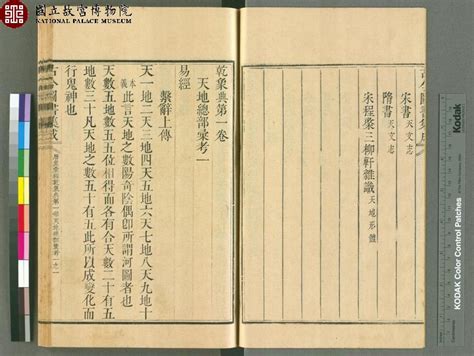 國立故宮博物院
NATIONAL PALACE MUSEUM
宋書天文志
隋書天文志
宋程棨三柳軒雜識天地形體
乾象典第一卷
天地總部彙考一
易經
繫辭上傳
天一地二天三地四天五地六天七地八天九地十
本義此言天地之數陽奇陰偶卽所謂河圖者也
天數五地數五五位相得而各有合天數二十有五
地數三十凡天地之數五十有五此所以成變化而
行鬼神也
Kodak
KODAK Color Control Patches